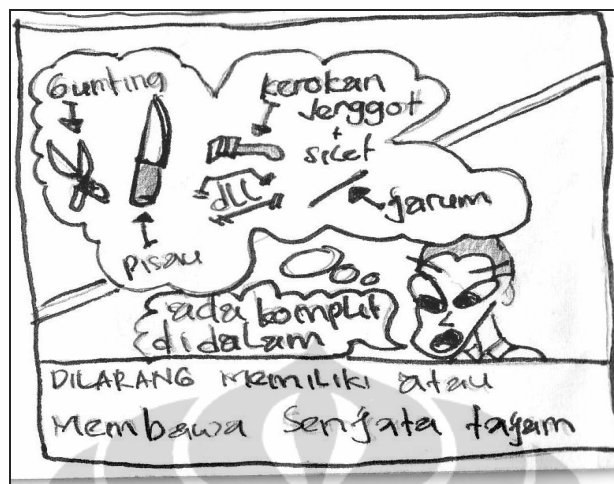 Gunting
kerokan
Jenggot
+
silet
dll
jarum
pisau
ada komplit
didalam
DILARANG MEMILIKI atau
Membawa Senjata tajam